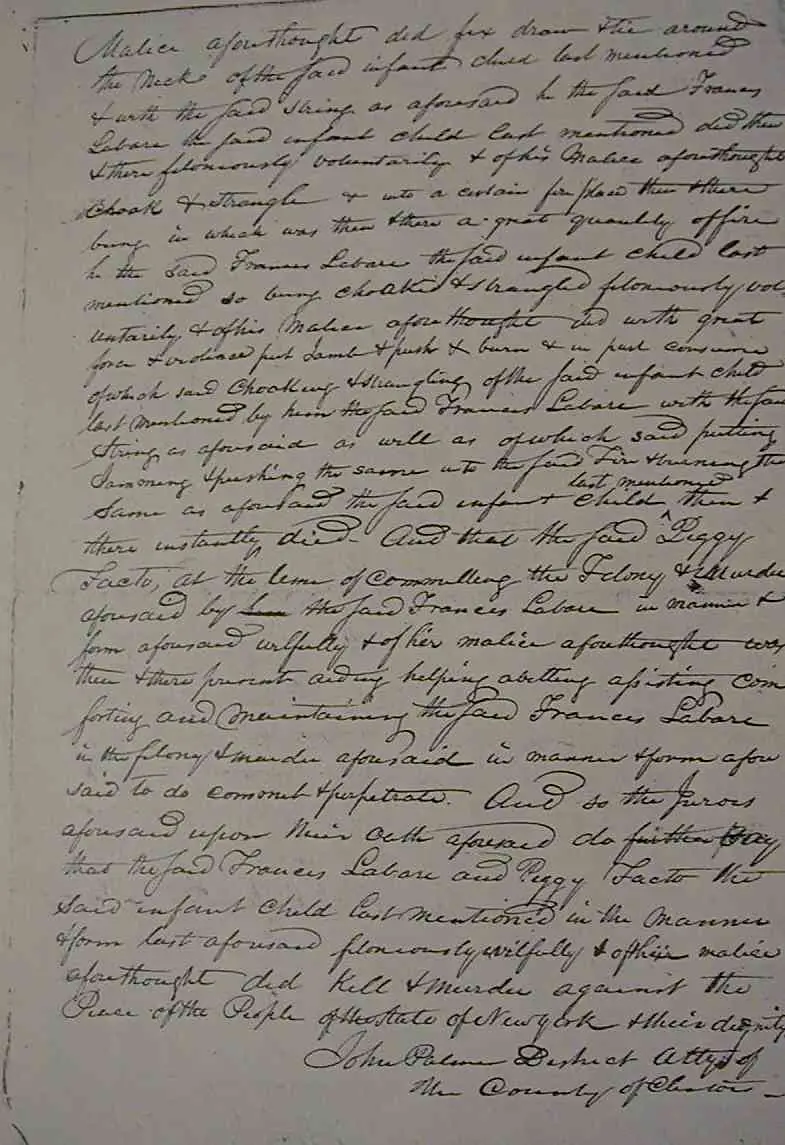 Malice aforethought did fix draw & tie around
the Neck of the said infant child last mentioned
& with the said string as aforesaid he the said Francis
Labare the said infant child last mentioned did then
& there feloniously voluntarily & of his Malice aforethought
choak & strangle & into a certain fire place then & there
being in which was then & there a great quantity of fire
he the said Francis Labare the said infant child last
mentioned so being choaked & strangled feloniously vol
untarily & of his Malice aforethought did with great
force & violence put Jamb & push & burn & in part consume
of which said Choaking & strangling of the said infant child
last mentioned by him the said Francis Labare with the said
String as aforesaid as well as of which said putting
Jamming & pushing the same into the said Fire & burning the
last mentioned
Same as aforesaid the said infant ^ child then &
there instantly died - And that the said Peggy
Facto, at the time of committing the Felony & Murder
aforesaid by the said Francis Labare in manner &
form aforesaid wilfully & of her malice aforethought was
then & there present aiding helping abetting assisting com
forting and maintaining the said Francis Labare
in the felony & murder aforesaid in manner & form afore
said to do commit & perpetrate. And so the Jurors
aforesaid upon their Oath aforesaid do further say
that the said Francis Labare and Peggy Facto the
said infant child last mentioned in the Manner
& form last aforesaid feloniously wilfully & of their malice
aforethought did Kill & Murder against the
Peace of the People of the State of New York & their dignity
John Palmer District Atty of
the County of Clinton -